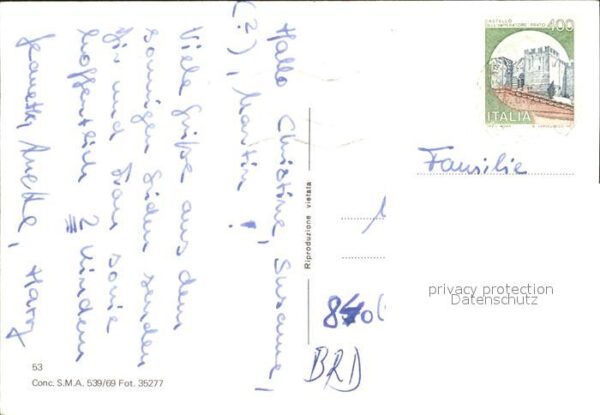 Hallo Christine, Susanne,
(?), Martin!
Viele Grüße aus dem
sonnigen Süden senden
Dir und Frau sowie
hoffentlich 2 Kindern
Jeanette, Anette, Harry
CASTELLO
DELL'IMPERATORE PRATO 400
ITALIA
Familie
Riproduzione vietata
privacy protection
Datenschutz
BRD
53
Conc. S.M.A. 539/69 Fot. 35277